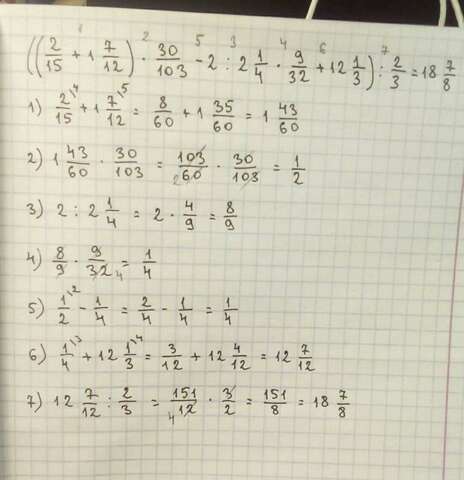 ((2/15 + 1 7/12) · 30/103 - 2 : 2 1/4 · 9/32 + 12 1/3) : 2/3 = 18 7/8
1) 2/15 + 1 7/12 = 8/60 + 1 35/60 = 1 43/60
2) 1 43/60 · 30/103 = 103/60 · 30/103 = 1/2
3) 2 : 2 1/4 = 2 · 4/9 = 8/9
4) 8/9 · 9/32 = 1/4
5) 1/2 - 1/4 = 2/4 - 1/4 = 1/4
6) 1/4 + 12 1/3 = 3/12 + 12 4/12 = 12 7/12
7) 12 7/12 : 2/3 = 151/12 · 3/2 = 151/8 = 18 7/8